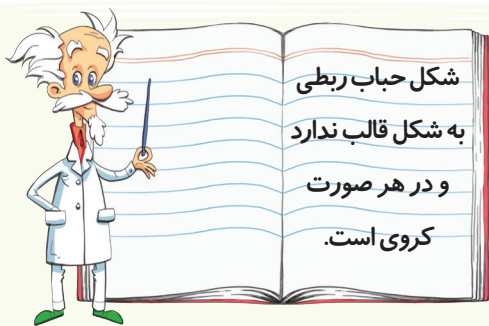 شکل حباب ربطی
به شکل قالب ندارد
و در هر صورت
کروی است.